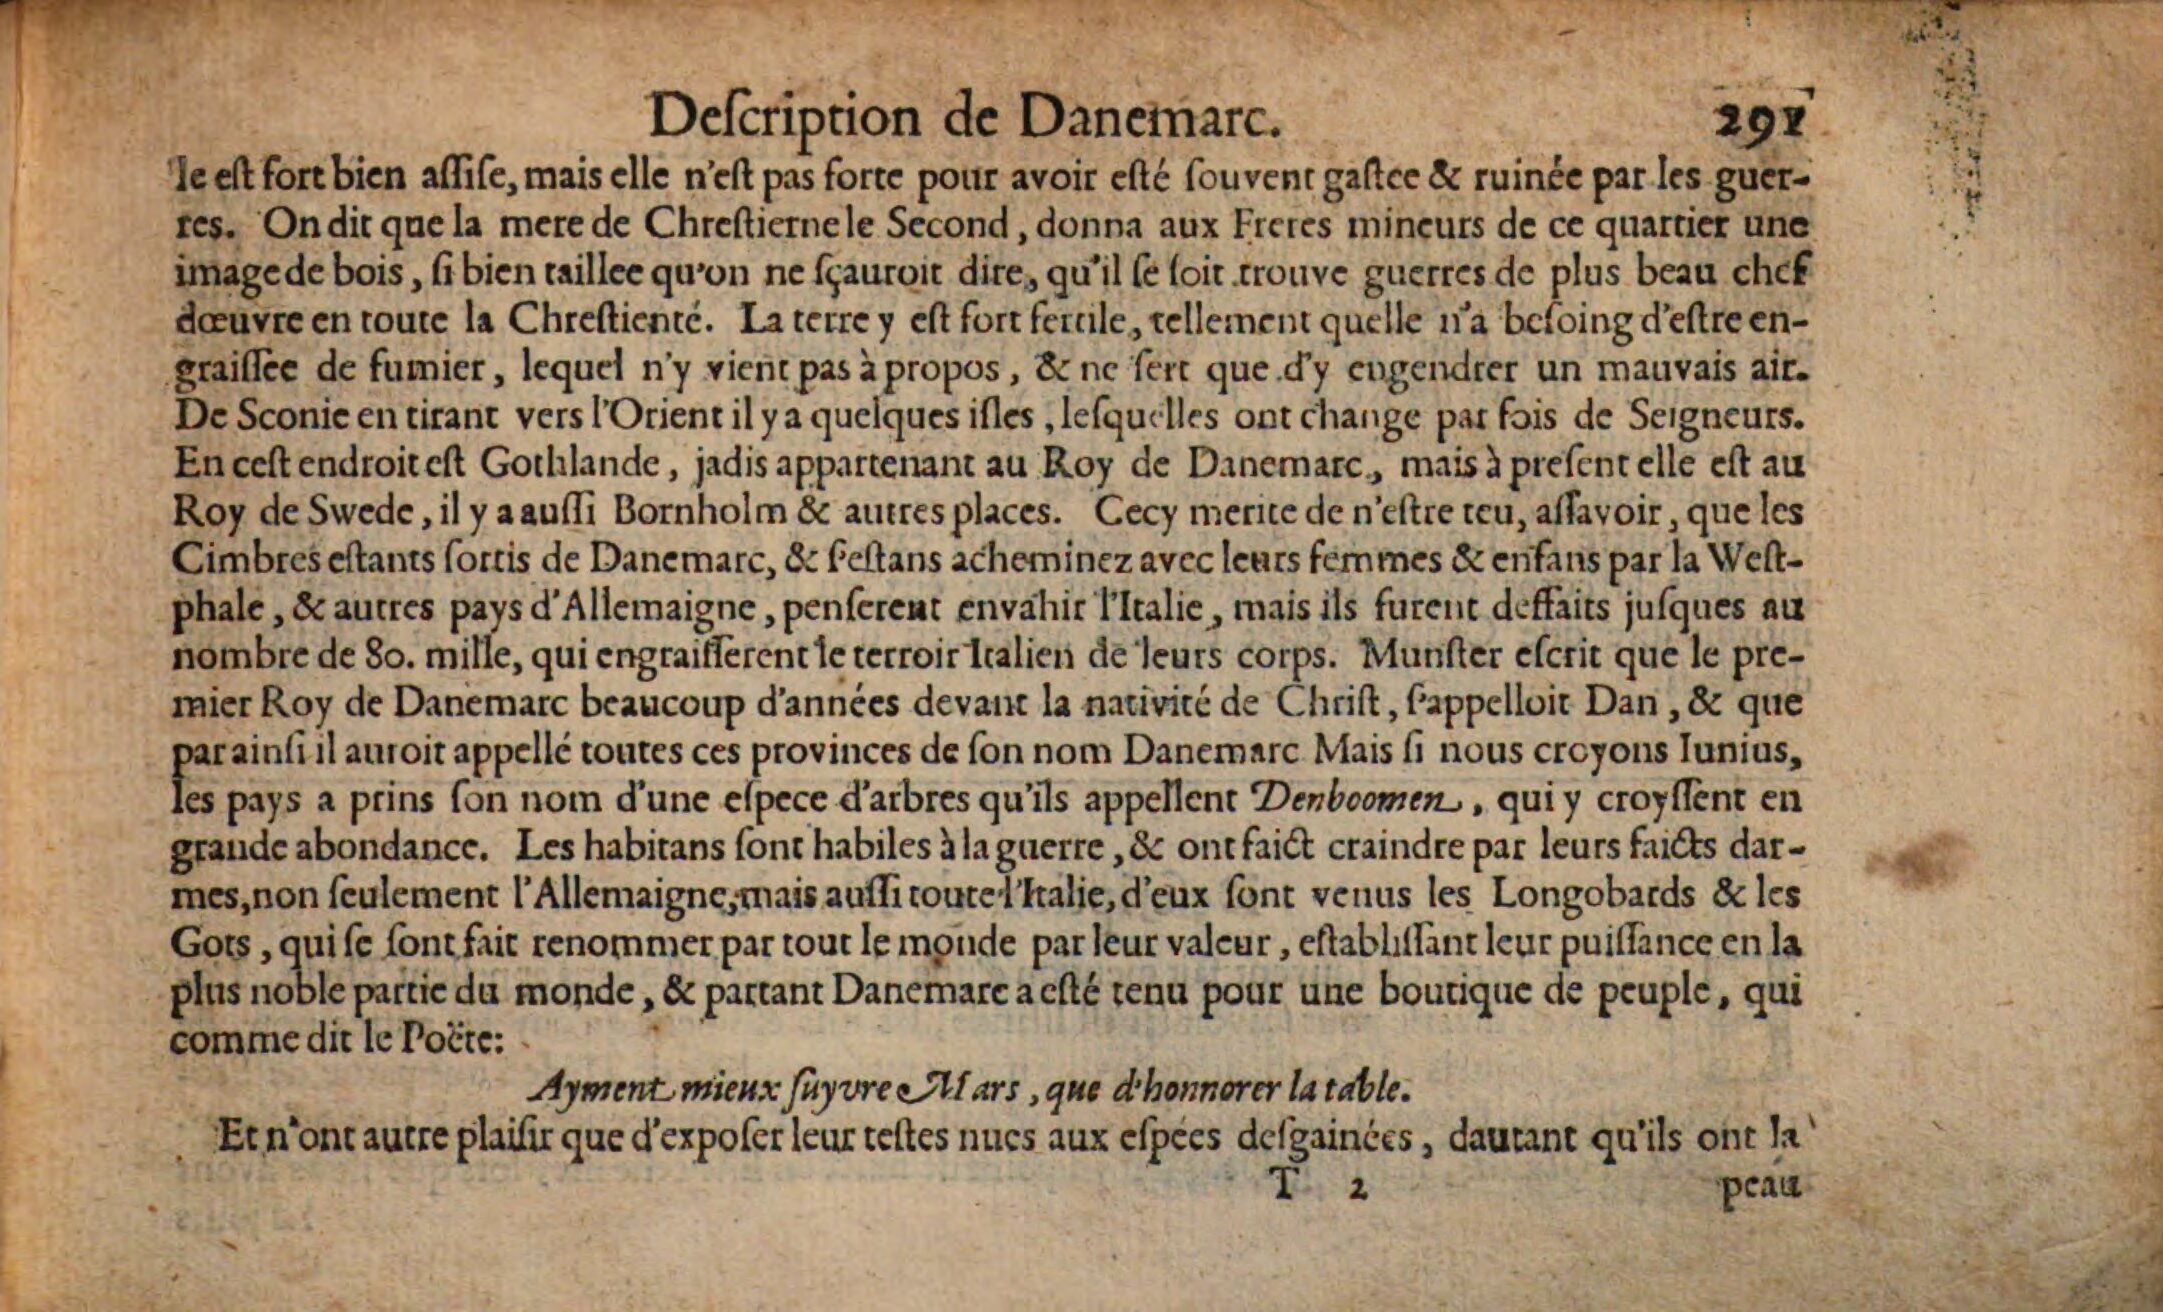 Deſcription de Danemarc. 291
le eſt fort bien aſſiſe, mais elle n'eſt pas forte pour avoir eſté ſouvent gaſtee & ruinée par les guer-
res. On dit que la mere de Chreſtierne le Second, donna aux Freres mineurs de ce quartier une
image de bois, ſi bien taillee qu'on ne ſçauroit dire, qu'il ſe ſoit trouve guerres de plus beau chef
dœuvre en toute la Chreſtienté. La terre y eſt fort fertile, tellement quelle n'a beſoing d'eſtre en-
graiſſee de fumier, lequel n'y vient pas à propos, & ne ſert que d'y engendrer un mauvais air.
De Sconie en tirant vers l'Orient il y a quelques iſles, leſquelles ont change par fois de Seigneurs.
En ceſt endroit eſt Gothlande, jadis appartenant au Roy de Danemarc, mais à preſent elle eſt au
Roy de Swede, il y a auſſi Bornholm & autres places. Cecy merite de n'eſtre teu, aſſavoir, que les
Cimbres eſtants ſortis de Danemarc, & ſ'eſtans acheminez avec leurs femmes & enfans par la Weſt-
phale, & autres pays d'Allemaigne, penſerent envahir l'Italie, mais ils furent deffaits juſques au
nombre de 80. mille, qui engraiſſerent le terroir Italien de leurs corps. Munſter eſcrit que le pre-
mier Roy de Danemarc beaucoup d'années devant la nativité de Chriſt, ſ'appelloit Dan, & que
par ainſi il auroit appellé toutes ces provinces de ſon nom Danemarc Mais ſi nous croyons Iunius,
les pays a prins ſon nom d'une eſpece d'arbres qu'ils appellent Denboomen, qui y croyſſent en
grande abondance. Les habitans ſont habiles à la guerre, & ont faict craindre par leurs faicts dar-
mes, non ſeulement l'Allemaigne, mais auſſi toute l'Italie, d'eux ſont venus les Longobards & les
Gots, qui ſe ſont fait renommer par tout le monde par leur valeur, eſtabliſſant leur puiſſance en la
plus noble partie du monde, & partant Danemarc a eſté tenu pour une boutique de peuple, qui
comme dit le Poëte:
Ayment mieux ſuyvre Mars, que d'honnorer la table.
Et n'ont autre plaiſir que d'expoſer leur teſtes nues aux eſpées deſgainées, dautant qu'ils ont la
T 2 peau